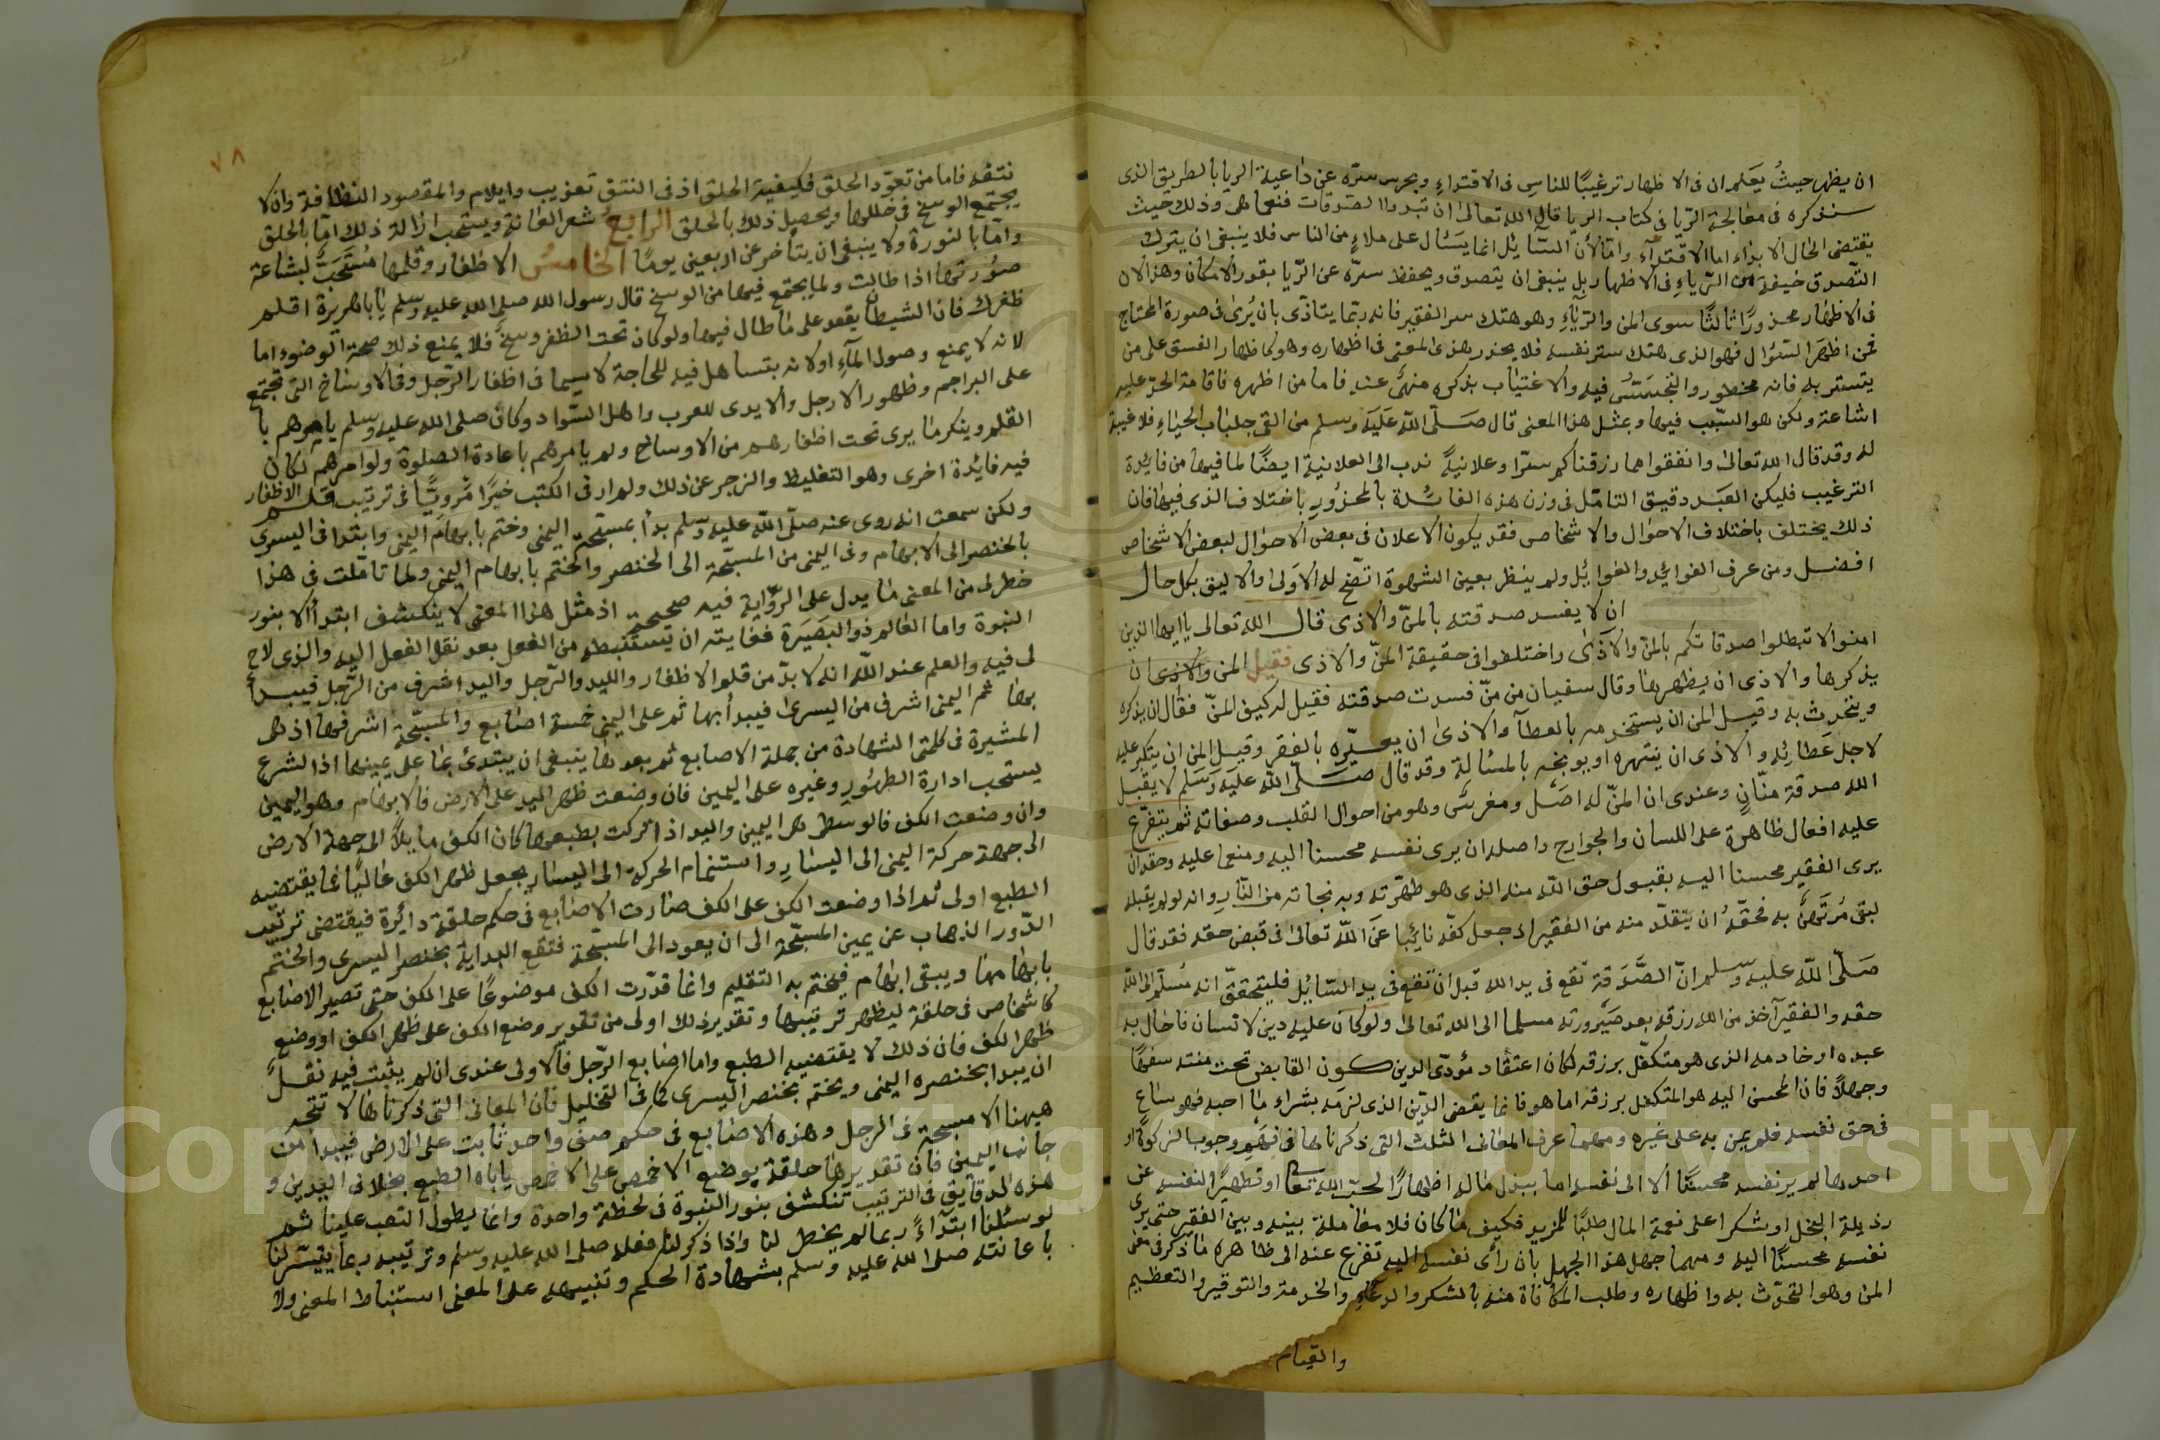 ان يظهر حيث يعلم ان فى الاظهار ترغيبًا للناس فى الاقتداء ويحرس سرّه عن داعية الريا بالطريق الذى
سنذكره فى معالجة الرّيا فى كتاب الريا قال الله تعالى ان تبدوا الصدقات فنعما هى وذلك حيث
يقتضى الحال الابداء اما الاقتداء واما لأن السّائل انما يسئال على ملاءٍ من الناس فلا ينبغى ان يترك
التّصدق خيفة من الرّياء فى الاظهار بل ينبغى ان يتصدق ويحفظ سرّه عن الرّيا بقدر الامكان وهذا لان
فى الاظهار محذورًا ثالثًا سوى المنّ والريآءِ وهو هتك ستر الفقير فانه ربّما يتاذّى بان يُرىٰ فى صورة المحتاج
فمن اظهر السّؤال فهو الذى هتك ستر نفسه فلا يحذر هذى المعنى فى اظهاره وهو كاظهار الفسق على من
يتستر به فانه محظور والتجسّس فيه والاغتياب بذكره منهىٌّ عنه فاما من اظهره فاقامة الحدّ عليه
اشاعة ولكن هو السّبب فيها وبمثل هذا المعنى قال صلّى الله عليه وسلم من القى جلباب الحياءِ فلا غيبة
له وقد قال الله تعالى وانفقوا مما رزقناكم سرّا وعلانيةً ندب الى العلانية ايضًا لما فيها من فايدة
الترغيب فليكن العبد دقيق التامّل فى وزن هذه الفائدة بالمحذور باختلاف الذى فيها فان
ذلك يختلف باختلاف الاحوال والاشخاص فقد يكون الاعلان فى بعض الاحوال لبعض الاشخاص
افضل ومن عرف الفوائد والغوائل ولم ينظر بعين الشهوة اتّضح له الاولى والاليق بكل حال
ان لا يفسد صدقته بالمنّ والاذى قال الله تعالى يا ايها الذين
امنوا لا تبطلوا صدقاتكم بالمنّ والاذىٰ واختلفوا فى حقيقة المنّ والاذى فقيل المن والاذى ان
يذكرها والاذى ان يظهرها وقال سفيان من منّ فسدت صدقته فقيل له كيف المنّ فقال ان يذكره
ويتحدث به وقيل المن ان يستخدمه بالعطآ والاذىٰ ان يعيّره بالفقر وقيل المن ان يتكبّر عليه
لاجل عطائه والاذى ان ينتهره او يوبّخه بالمسئالة وقد قال صلّى الله عليه وسلم لا يقبل
الله صدقة منّانٍ وعندى ان المنّ له اصل ومغرس وهو من احوال القلب وصفاته ثم يتفرع
عليه افعال ظاهرة على اللسان والجوارح واصله ان يرى نفسه محسنا اليه ومنعما عليه وحقه ان
يرى الفقير محسنا اليه بقبول حق الله منه الذى هو طهرته وبه نجاته من النّار وانه لو لم يقبله
لبقى مُرتهنًا به فحقّه ان يتقلّد منه من الفقير اذ جعل كفّه نائبًا عن الله تعالى فى قبض حقه فقد قال
صلّى الله عليه وسلم انّ الصَّدَقة تقع فى يد الله قبل ان تقع فى يد السّائل فليتحقّق انه مُسلّم الى الله
حقه والفقير آخذ من الله رزقه بعد صَيرورته مسلما الى الله تعالىٰ ولو كان عليه دين لانسان فاحال به
عبده او خادمه الذى هو متكفّل برزقه لكان اعتقاد مؤدّى الدين كون القابض تحت منته سفهًا
وجهلاً فان المحسن اليه هو المتكفل برزقه اما هو فانما يقضى الدّين الذى لزمه بشراء ما احبه فهو ساعٍ
فى حق نفسه فلم يمن به على غيره ومهما عرف المعانى الثلث التى ذكرناها فى فهم وجوب الزكوة او
احدها لم ير نفسه محسنًا الا الى نفسه اما ببذل ماله اظهارًا لحبّ الله تعالى او تطهيرًا لنفسه عن
رذيلة البخل او شكرا على نعمة المال طلبًا للمزيد فكيف ما كان فلا معاملة بينه وبين الفقير حتى يرى
نفسه محسنًا اليه ومهما جهل هذا الجهل بان رأى نفسه اليه تفرع عنه الى ظاهره ما ذكر فى معنى
المن وهو التحدّث به واظهاره وطلب المكافاة منه بالشكر والدعاء والخدمة والتوقير والتعظيم
والقيام
٧٨
نتفه فاما من تعوّد الحلق فكيفية الحلق اذ فى النتف تعذيب وايلام والمقصود النظافة وان لا
يجتمع الوسخ فى خللها ويحصل ذلك بالحلق الرابع شعر العانة ويستحب ازالة ذلك امّا بالحلق
وامّا بالنورة ولا ينبغى ان يتأخر عن اربعين يومًا الخامس الاظفار وقلمها مُستحَبٌّ لبشاعة
صُورتها اذا طالت ولما يجتمع فيها من الوسخ قال رسول الله صلى الله عليه وسلم يا باهريرة اقلم
ظفرك فان الشيطان يقعد على ما طال فيها ولو كان تحت الظفر وسخٌ فلا يمنع ذلك صحة الوضوء اما
لانه لا يمنع وصول المآء او لانه يتساهل فيه للحاجة لا سيما فى اظفار الرّجل وفى الاوساخ التى تجتمع
على البراجم وظهور الارجل والايدى للعرب واهل السّواد وكان صلى الله عليه وسلم يامرهم با
القلم وينكر ما يرى تحت اظفارهم من الاوساخ ولم يامرهم باعادة الصلوة ولو امرهم لكان
فيه فايدة اخرى وهو التغليظ والزجر عن ذلك ولم ار فى الكتب خبرًا مرويًّا فى ترتيب قلم الاظفار
ولكن سمعت انه روى عنه صلّى الله عليه وسلم بدأ بمسبّحة اليمنى وختم بابهام اليمنى وابتدا فى اليسرى
بالخنصر الى الابهام وفى اليمنى من المسبّحة الى الخنصر والختم بابهام اليمنى ولما تاملت فى هذا
خطر لى من المعنى ما يدل على الروّاية فيه صحيحة اذ مثل هذا المعنى لا ينكشف ابتدأ الا بنور
النبوة واما العالم ذو البصيرة فغايته ان يستنبطه من الفعل بعد نقل الفعل اليه والذى لاح
لى فيه والعلم عند الله انه لا بدّ من قلم الاظفار واليد والرّجل واليد اشرف من الرّجل فيبدأ
بها ثم اليمنى اشرف من اليسرىٰ فيبدأ بها ثم على اليمنى خمسة اصابع والمسبّحة اشرفها اذ هى
المشيرة فى كلمتى الشهادة من جملة الاصابع ثم بعدها ينبغى ان يبتدئ بما على يمينها اذ الشرع
يستحب ادارة الطهُور وغيره على اليمين فان وضعت ظهر اليد على الارض فالابهام وهو اليمين
وان وضعت الكف فالوسطى هى اليمين واليد اذا تركت بطبعها كان الكف مايلاً الى جهة الارض
الى جهة حركة اليمنى الى اليسار واستتمام الحركة الى اليسار يجعل ظهر الكف عاليًا فما يقتضيه
الطبع اولى ثم اذا وضعت الكف على الكف صارت الاصابع فى حكم حلقة دائرة فيقتضى ترتيب
الدّور الذهاب عن يمين المسبّحة الى ان يعود الى المسبّحة فتقع البداية بخنصر اليسرى والختم
بابهامها ويبقى ابهام فيختم به التقليم وانما قدّرت الكف موضوعًا على الكف حتى تصير الاصابع
كاشخاص فى حلقة ليظهر ترتيبها وتقدير ذلك اولى من تقدير وضع الكف على ظهر الكف او وضع
ظهر الكف فان ذلك لا يقتضيه الطبع واما اصابع الرّجل فالاولى عندى ان لم يثبت فيه نقلٌ
ان يبدا بخنصره اليمنى ويختم بخنصر اليسرى كما فى التخليل فان المعانى التى ذكرناها لا تتجه
هيهنا الا مسبحة فى الرجل وهذه الاصابع فى حكم صف واحد ثابت على الارض فيبدا من
جانب اليمنى فان تقديرها حلقة بوضع الاخمص على الاخمص ياباه الطبع بخلاف اليدين و
هذه الدقايق فى الترتيب تنكشف بنور النبوة فى لحظة واحدة وانما يطول التعب علينا ثم
لو سئلنا ابتداءً ربما لم يخطر لنا واذا ذكر لنا فعله صلى الله عليه وسلم وترتيبه ربما يتيسّر لنا
باعانته صلى الله عليه وسلم بشهادة الحكم وتنبيهه على المعنى استنباط المعنى ولا